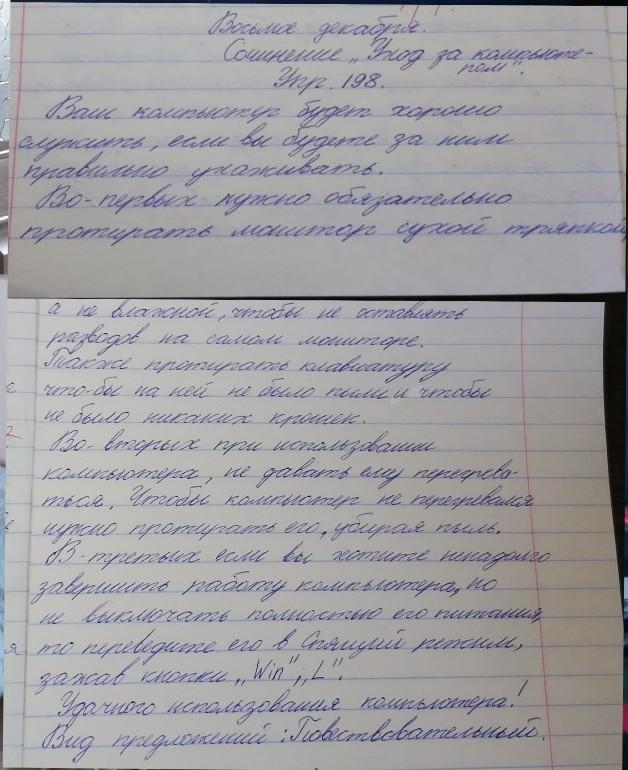 Восьмое декабря.
Сочинение „Уход за компьюте-
ром".
Упр. 198.
Ваш компьютер будет хорошо
служить, если вы будете за ним
правильно ухаживать.
Во-первых нужно обязательно
протирать монитор сухой тряпкой,
а не влажной, чтобы не оставлять
разводов на самом мониторе.
Также протирать клавиатуру
что-бы на ней не было пыли и чтобы
не было никаких крошек.
Во-вторых при использовании
компьютера, не давать ему перегрева-
ться. Чтобы компьютер не перегревался
нужно протирать его, убирая пыль.
В-третьих если вы хотите ненадолго
завершить работу компьютера, но
не выключать полностью его питания,
то переведите его в Спящий режим,
зажав кнопки „Win";„L".
Удачного использования компьютера!
Вид предложений: Повествовательный.